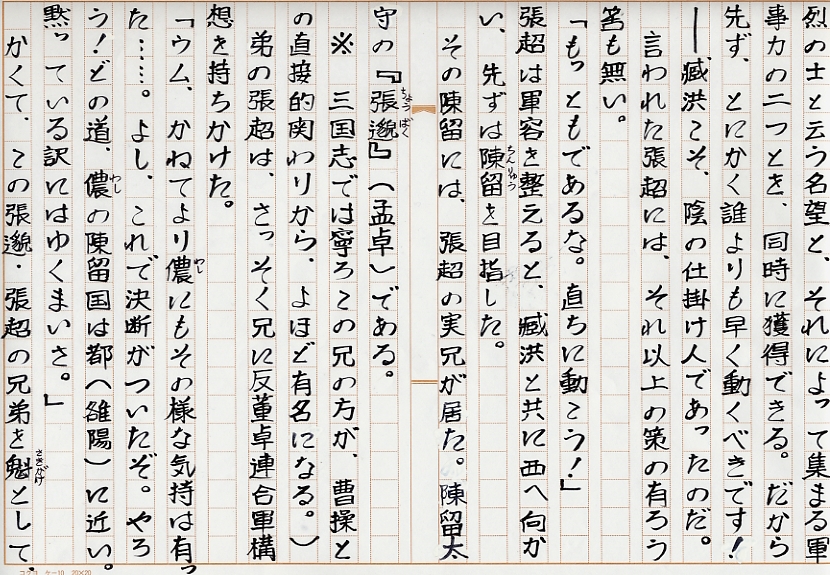 烈の士と云う名望と、それによって集まる軍
事力の二つとを、同時に獲得できる。だから
先ず、とにかく誰よりも早く動くべきです！
──臧洪こそ、陰の仕掛け人であったのだ。
言われた張超には、それ以上の策の有ろう
筈も無い。
「もっともであるな。直ちに動こう！」
張超は軍容を整えると、臧洪と共に西へ向か
い、先ずは陳留ちんりゅうを目指した。
その陳留には、張超の実兄が居た。陳留太
守の『張邈ちょうばく』（孟卓）である。
※ 三国志では寧ろこの兄の方が、曹操と
の直接的関わりから、よほど有名になる。）
弟の張超は、さっそく兄に反董卓連合軍構
想を持ちかけた。
「ウム、かねてより儂わしにもその様な気持は有っ
た……。よし、これで決断がついたぞ。やろ
う！どの道、儂わしの陳留国は都（雒陽）に近い。
黙っている訳にはゆくまいさ。」
かくて、この張邈・張超の兄弟を魁さきがけとして、
コクヨ ケー10 20×20